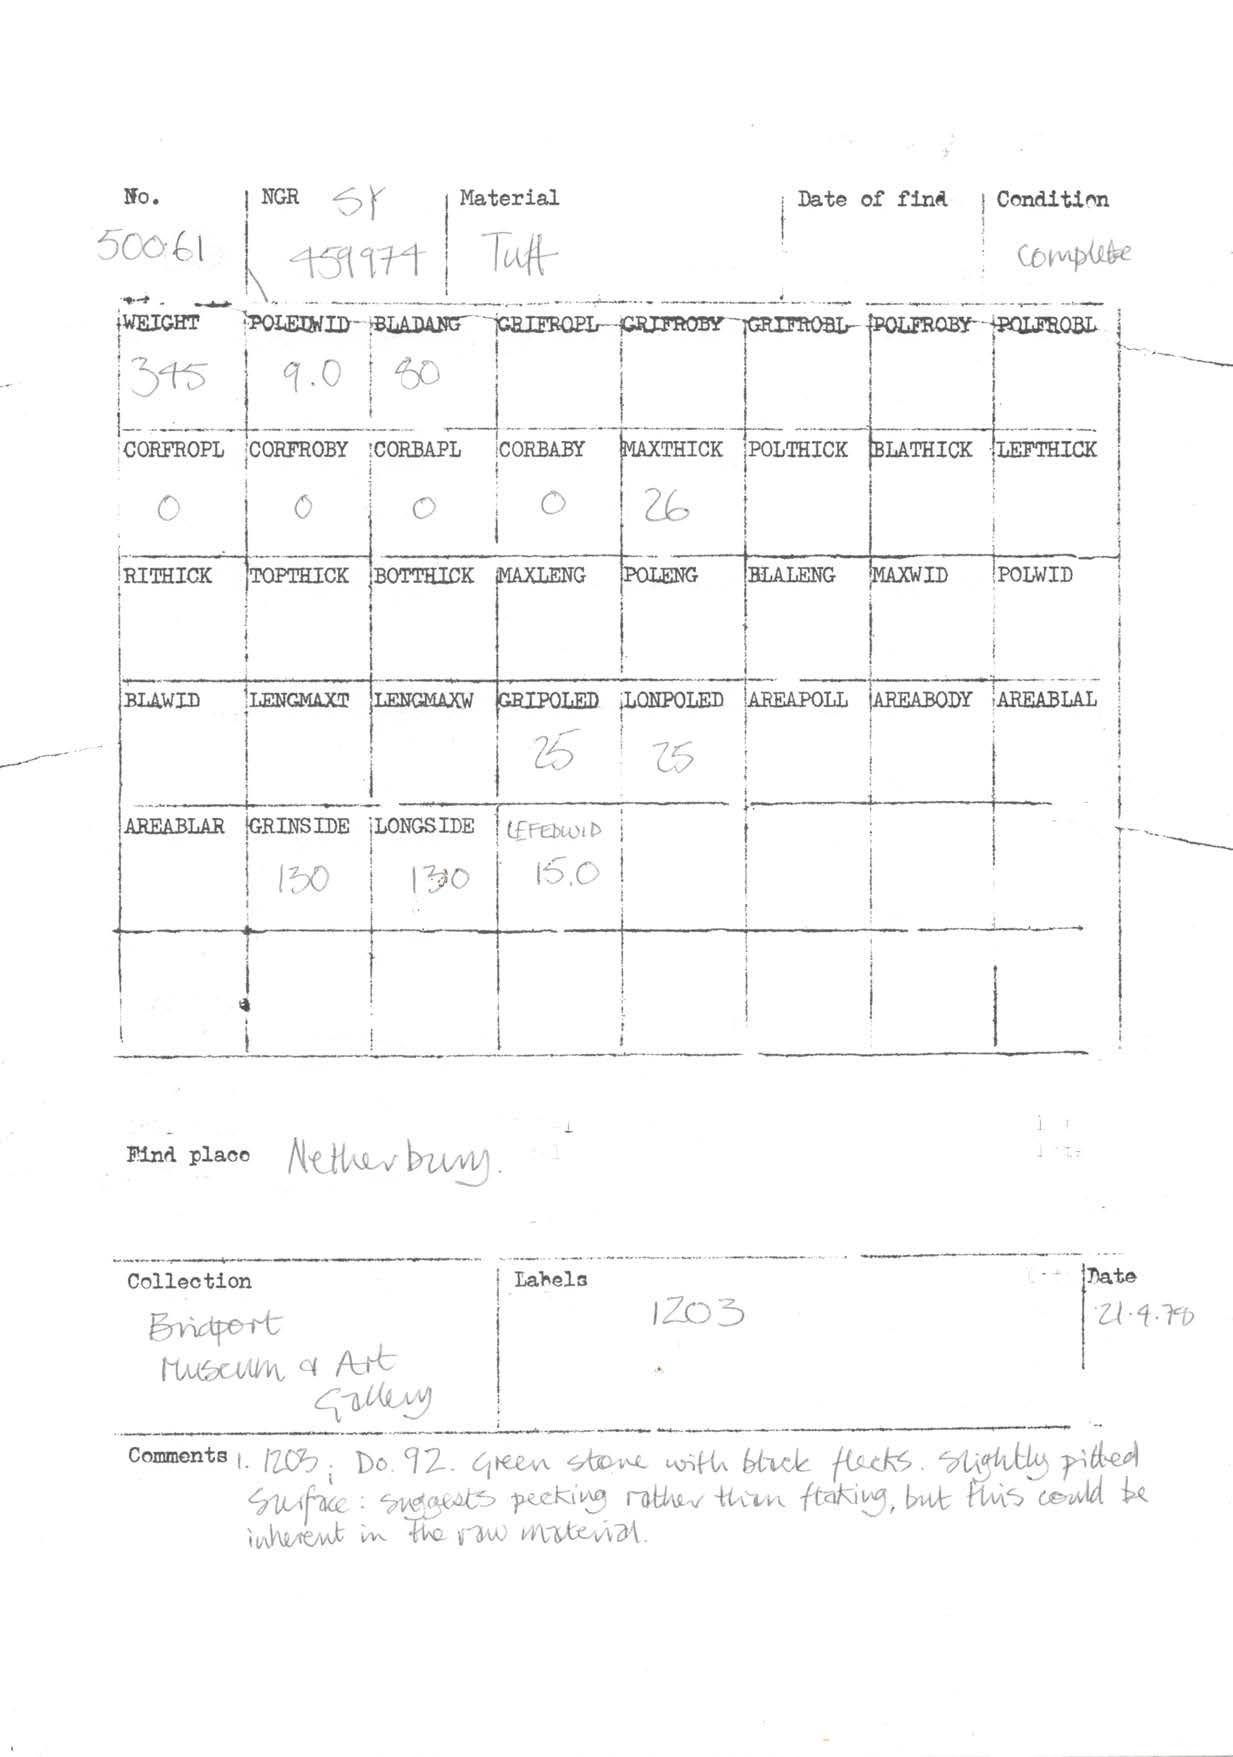 No. NGR SY Material Date of find Condition
50061 459974 Tuff complete
WEIGHT POLEDWID BLADANG GRIFROPL GRIFROBY GRIFROBL POLFROBY POLFROBL
345 9.0 80
CORFROPL CORFROBY CORBAPL CORBABY MAXTHICK POLTHICK BLATHICK LEFTHICK
0 0 0 0 26
RITHICK TOPTHICK BOTTHICK MAXLENG POLENG BLALENG MAXWID POLWID
BLAWID LENGMAXT LENGMAXW GRIPOLED LONPOLED AREAPOLL AREABODY AREABLAL
25 25
AREABLAR GRINSIDE LONGSIDE LEFEDWID
130 130 15.0
Find place Netherbury.
Collection Labels Date
Bridport 1203 21.4.78
Museum & Art
Gallery
Comments 1. 1203; Do. 92. Green stone with black flecks. Slightly pitted
surface: suggests pecking rather than flaking, but this could be
inherent in the raw material.